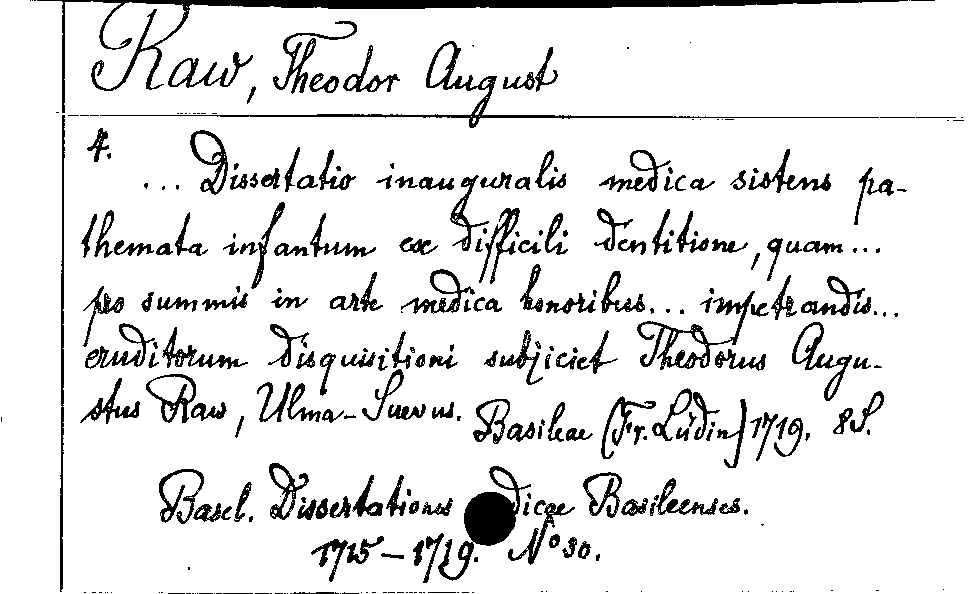 Raw, Theodor August
4.
... Dissertatio inauguralis medica sistens pa-
themata infantum ex difficili dentitione, quam...
pro summis in arte medica honoribus... impetrandis...
eruditorum disquisitioni subjiciet Theodorus Augu-
stus Raw, Ulma-Suevus. Basileae (Fr. Lüdin) 1719. 8S.
Basel. Dissertationes dicae Basileenses.
1715-1719. No 30.